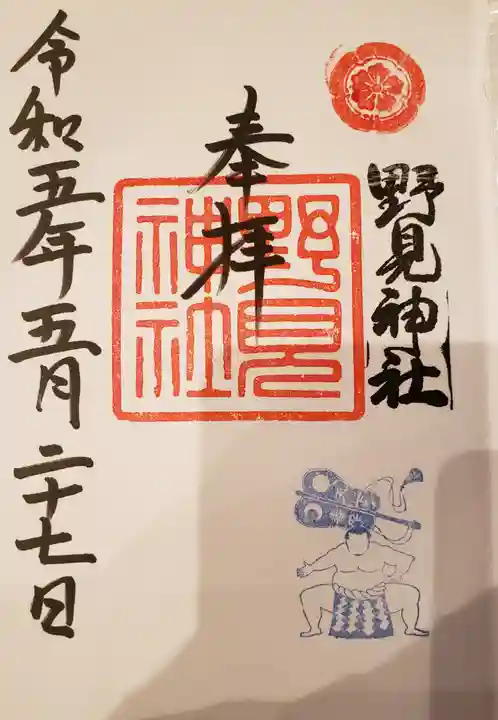 野見神社
奉拝
野見
神社
令和五年五月二十七日